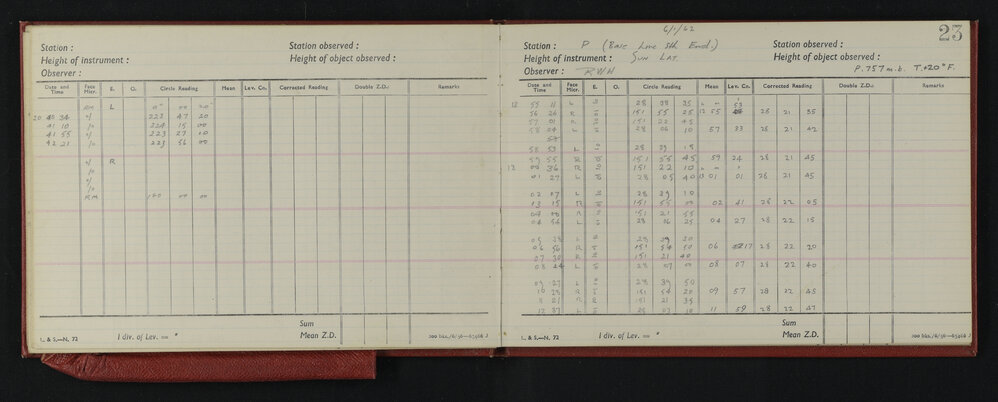 Station :
Station observed :
Height of instrument :
Height of object observed :
Observer :
Date and Time Face Micr. E. O. Circle Reading Mean Lev. Co. Corrected Reading Double Z.D. Remarks
RM L 0 00 20
20 40 34 0/ 223 47 20
41 10 /0 224 15 00
41 55 0/ 223 27 10
42 21 /0 223 56 00
0/ R
/0
0/
/0
RM 180 00 00
Sum
L. & S.—N. 72 1 div. of Lev. = " Mean Z.D.
6/1/62
23
Station : P (Base Line Sth End.) Station observed :
Height of instrument : Sun Lat Height of object observed :
Observer : RWH P. 757 m.b. T. +20°F.
Date and Time Face Micr. E. O. Circle Reading Mean Lev. Co. Corrected Reading Double Z.D. Remarks
12 55 11 L 28 38 35
56 26 R 151 55 25 12 55 53 28 21 35
57 01 R 151 22 45
58 24 L 28 06 10 57 33 28 21 42
58 53 L 28 39 15
59 55 R 151 55 45 59 24 28 21 45
13 00 36 R 151 22 10
01 27 L 28 05 40 13 01 01 28 21 45
02 07 L 28 39 10
03 15 R 151 55 00 02 41 28 22 05
04 00 R 151 21 55
04 54 L 28 06 25 04 27 28 22 15
05 38 L 28 39 20
06 56 R 151 54 50 06 17 28 22 20
07 30 R 151 21 40
08 24 L 28 07 00 08 07 28 22 40
09 27 L 28 39 50
10 28 R 151 54 20 09 57 28 22 45
R 151 21 35
12 37 L 28 07 10 11 59 28 22 47
Sum
L. & S.—N. 72 1 div. of Lev. = " Mean Z.D.